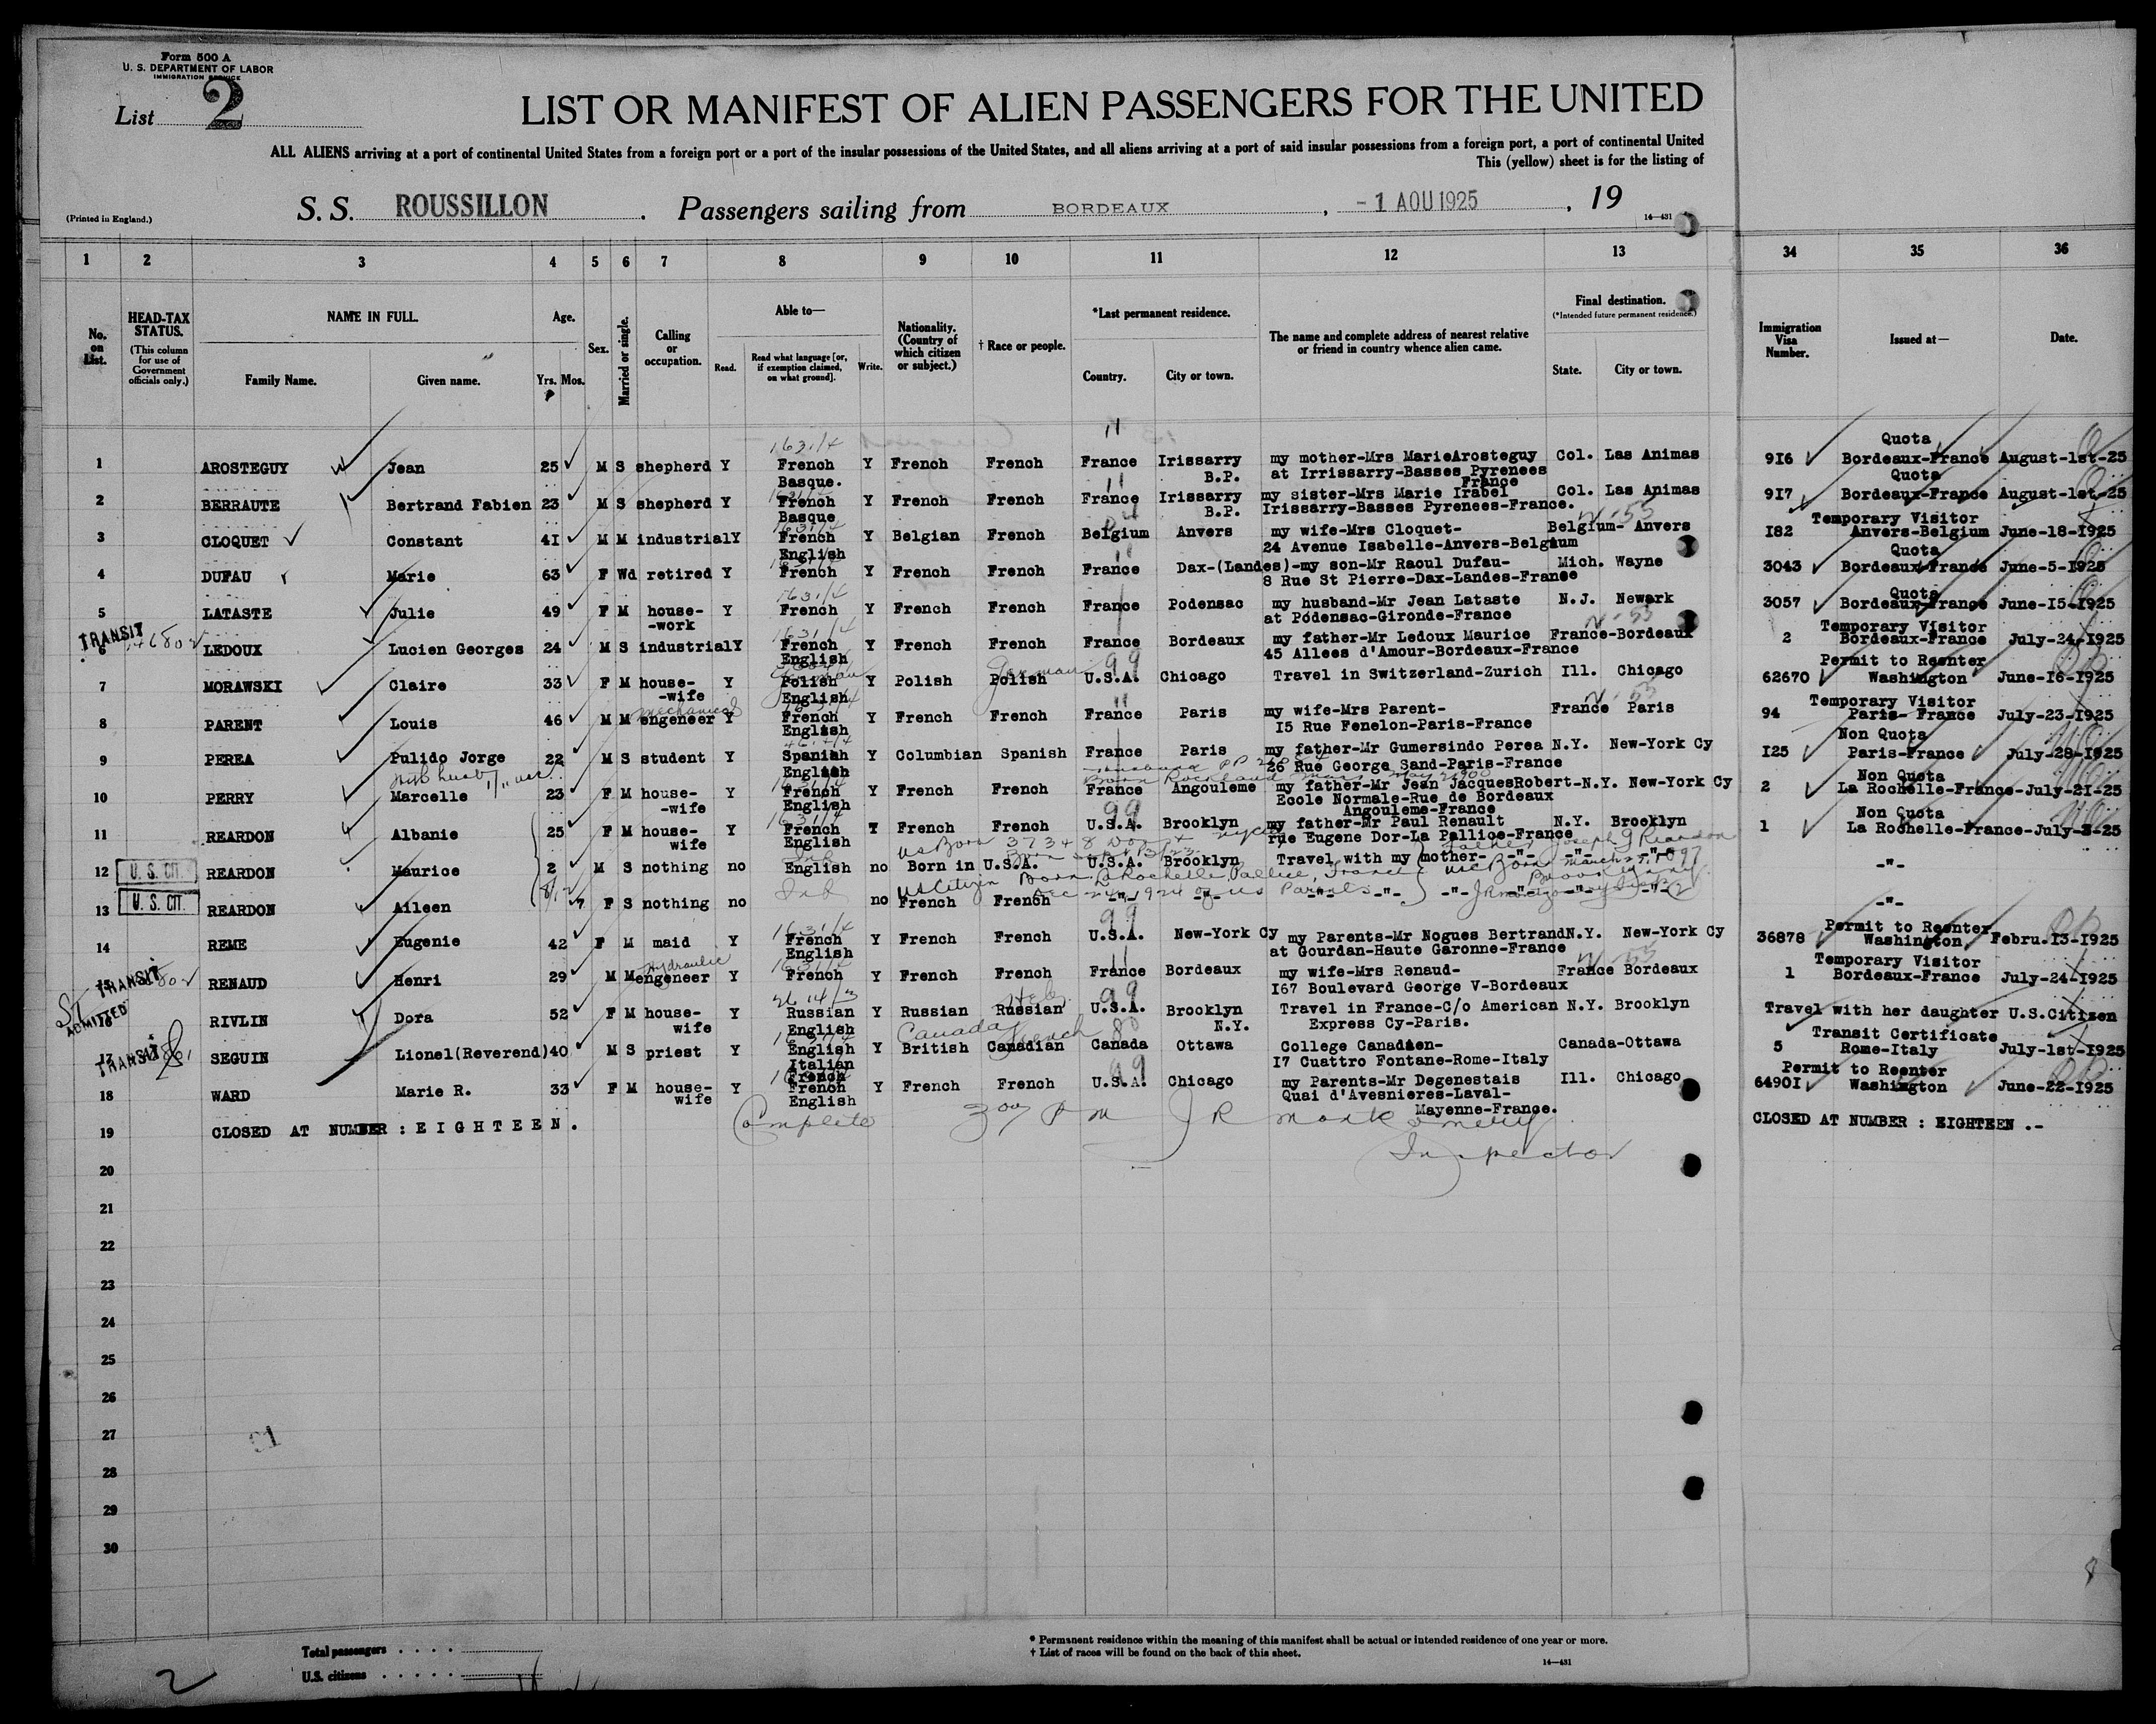 Form 500 A
U. S. DEPARTMENT OF LABOR
IMMIGRATION SERVICE
List 2
LIST OR MANIFEST OF ALIEN PASSENGERS FOR THE UNITED
ALL ALIENS arriving at a port of continental United States from a foreign port or a port of the insular possessions of the United States, and all aliens arriving at a port of said insular possessions from a foreign port, a port of continental United
This (yellow) sheet is for the listing of
(Printed in England.)
S. S. ROUSSILLON . Passengers sailing from BORDEAUX , - 1 AOU 1925 , 19
14—431
1 2 3 4 5 6 7 8 9 10 11 12 13 34 35 36
No. on List.
HEAD-TAX STATUS.
(This column for use of Government officials only.)
NAME IN FULL.
Family Name. Given name.
Age.
Yrs. Mos.
Sex.
Married or single.
Calling or occupation.
Able to—
Read. Read what language [or, if exemption claimed, on what ground]. Write.
Nationality. (Country of which citizen or subject.)
† Race or people.
*Last permanent residence.
Country. City or town.
The name and complete address of nearest relative or friend in country whence alien came.
Final destination.
(*Intended future permanent residence.)
State. City or town.
Immigration Visa Number.
Issued at—
Date.
1631/4 11 Quota
1 AROSTEGUY Jean 25 M S shepherd Y French Y French French France Irissarry my mother-Mrs MarieArosteguy Col. Las Animas 916 Bordeaux-France August-1st-25
Basque. B.P. at Irrissarry-Basses Pyrenees
France
11 Quota
2 BERRAUTE Bertrand Fabien 23 M S shepherd Y French Y French French France Irissarry my sister-Mrs Marie Irabel Col. Las Animas 917 Bordeaux-France August-1st-25
Basque B.P. Irissarry-Basses Pyrenees-France.
1631/4 Temporary Visitor
3 CLOQUET Constant 41 M M industrial Y French Y Belgian French Belgium Anvers my wife-Mrs Cloquet- Belgium- Anvers 182 Anvers-Belgium June-18-1925
English 24 Avenue Isabelle-Anvers-Belgium
11 Quota
4 DUFAU Marie 63 F Wd retired Y French Y French French France Dax-(Landes)-my son-Mr Raoul Dufau- Mich. Wayne 3043 Bordeaux-France June-5-1925
8 Rue St Pierre-Dax-Landes-France
1631/4 Quota
5 LATASTE Julie 49 F M house- Y French Y French French France Podensac my husband-Mr Jean Lataste N.J. Newark 3057 Bordeaux-France June-15-1925
-work at Pódensac-Gironde-France
TRANSIT 1631/4 Temporary Visitor
6 LEDOUX Lucien Georges 24 M S industrial Y French Y French French France Bordeaux my father-Mr Ledoux Maurice France-Bordeaux 2 Bordeaux-France July-24-1925
English 45 Allees d'Amour-Bordeaux-France
German 99 Permit to Reenter
7 MORAWSKI Claire 33 F M house- Y Polish Y Polish Polish U.S.A. Chicago Travel in Switzerland-Zurich Ill. Chicago 62670 Washington June-16-1925
-wife English
mechanical 11 Temporary Visitor
8 PARENT Louis 46 M M engeneer Y French Y French French France Paris my wife-Mrs Parent- France Paris 94 Paris- France July-23-1925
English 15 Rue Fenelon-Paris-France
Non Quota
9 PEREA Pulido Jorge 22 M S student Y Spanish Y Columbian Spanish France Paris my father-Mr Gumersindo Perea N.Y. New-York Cy 125 Paris-France July-28-1925
English 26 Rue George Sand-Paris-France
Born Rockland Mass May 2 1900 Non Quota
10 PERRY Marcelle 23 F M house- Y French Y French French France Angouleme my father-Mr Jean JacquesRobert-N.Y. New-York Cy 2 La Rochelle-France-July-21-25
-wife English Ecole Normale-Rue de Bordeaux
Angouleme-France
1631/4 99 Non Quota
11 REARDON Albanie 25 F M house- Y French Y French French U.S.A. Brooklyn my father-Mr Paul Renault N.Y. Brooklyn 1 La Rochelle-France-July-3-25
wife English rue Eugene Dor-La Pallice-France
US Born 37348 father Joseph J Reardon
U. S. CIT.
12 REARDON Maurice 2 M S nothing no English no Born in U.S.A. U.S.A. Brooklyn Travel with my mother- -"- -"- -"- -"-
US Citizen Born La Rochelle Pallice, France USC Born March 27 1897
Dec 24 1924 of US Parents Brooklyn NY
U. S. CIT.
13 REARDON Aileen 7 F S nothing no Inf no French French -"- -"- -"- -"- -"- -"- -"-
1631/4 99 Permit to Reenter
14 REME Eugenie 42 F M maid Y French Y French French U.S.A. New-York Cy my Parents-Mr Nogues Bertrand N.Y. New-York Cy 36878 Washington. Febru.13-1925
English at Gourdan-Haute Garonne-France
TRANSIT Hydraulic 11 Temporary Visitor
15 RENAUD Henri 29 M M engeneer Y French Y French French France Bordeaux my wife-Mrs Renaud- France Bordeaux 1 Bordeaux-France July-24-1925
167 Boulevard George V-Bordeaux
ADMITTED 2614/3 Heb. 99
16 RIVLIN Dora 52 F M house- Y Russian Y Russian Russian U.S.A. Brooklyn Travel in France-C/o American N.Y. Brooklyn Travel with her daughter U.S.Citizen
wife English N.Y. Express Cy-Paris.
TRANSIT Canada French Transit Certificate
17 SEGUIN Lionel(Reverend) 40 M S priest Y English Y British Canadian Canada Ottawa College Canadien- Canada-Ottawa 5 Rome-Italy July-1st-1925
Italian 17 Cuattro Fontane-Rome-Italy
French
99 Permit to Reenter
18 WARD Marie R. 33 F M house- Y French Y French French U.S.A. Chicago my Parents-Mr Degenestais Ill. Chicago 64901 Washington June-22-1925
wife English Quai d'Avesnieres-Laval-
Mayenne-France.
19 CLOSED AT NUMBER : E I G H T E E N . CLOSED AT NUMBER : EIGHTEEN .-
Complete 3 00 P M J R Montgomery
Inspector
20
21
22
23
24
25
26
27
28
29
30
Total passengers . . . .
U.S. citizens . . . . .
2
* Permanent residence within the meaning of this manifest shall be actual or intended residence of one year or more.
† List of races will be found on the back of this sheet.
14—431